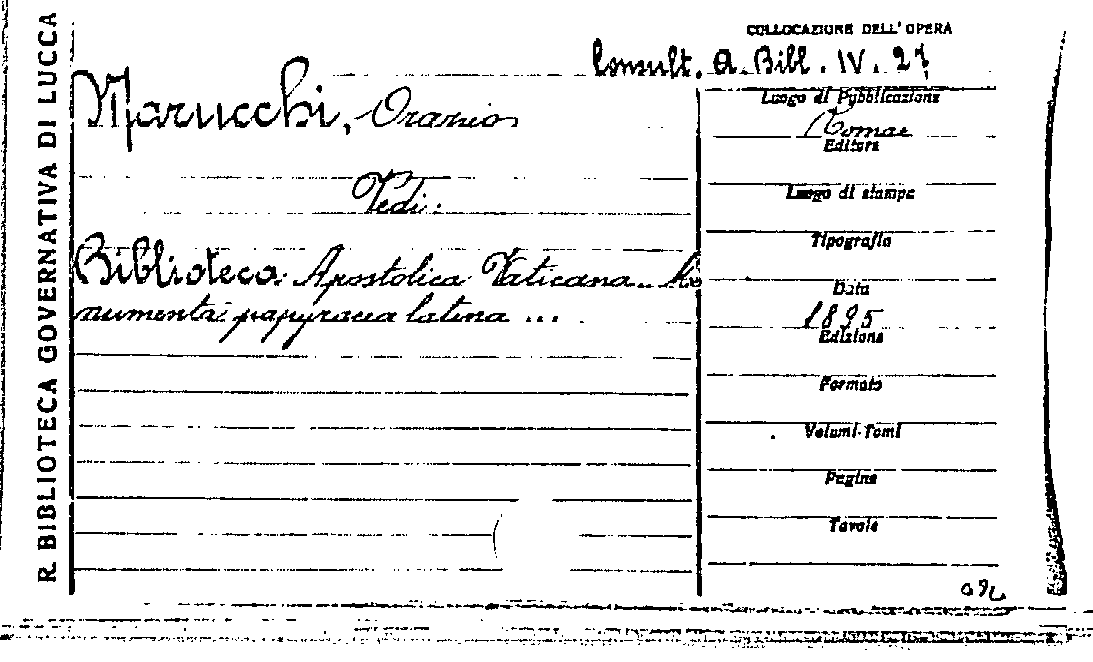 R. BIBLIOTECA GOVERNATIVA DI LUCCA
COLLOCAZIONE DELL'OPERA
Consult. A. Bibl. IV. 27
Marucchi, Orazio
Vedi:
Biblioteca Apostolica Vaticana. Mo
numenta papyracea latina ...
Luogo di Pubblicazione
Romae
Editore
Luogo di stampa
Tipografia
Data
1895
Edizione
Formato
Volumi-Tomi
Pagine
Tavole